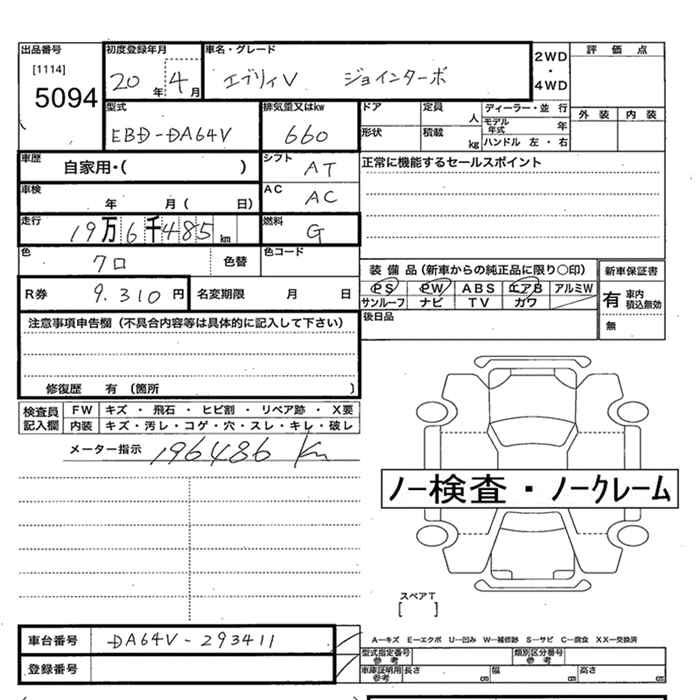 出品番号
[1114]
5094
初度登録年月
20 年 4 月
車名・グレード
エブリィV ジョインターボ
2WD
・
4WD
評価点
外装 内装
型式
EBD-DA64V
排気量又はkw
660
ドア
定員 人
ディーラー・並 行
モデル年式 年
形状
積載 kg
ハンドル 左・右
車歴
自家用・( )
シフト
AT
正常に機能するセールスポイント
車検
年 月( 日)
AC
AC
走行
19万6千485 km
燃料
G
色
クロ
色替
色コード
装備品(新車からの純正品に限り○印)
新車保証書
PS PW ABS エアB アルミW
サンルーフ ナビ TV カワ
有 車内積込無効
無
R券
9.310 円
名変期限 月 日
後日品
注意事項申告欄(不具合内容等は具体的に記入して下さい)
修復歴 有 (箇所 )
検査員記入欄
FW キズ ・ 飛石 ・ ヒビ割 ・ リペア跡 ・ X要
内装 キズ・汚レ・コゲ・穴・スレ・キレ・破レ
メーター指示 196486 Km
ノー検査・ノークレーム
スペアT
[ ]
車台番号
DA64V-293411
登録番号
A-キズ E-エクボ U-凹み W-補修跡 S-サビ C-腐食 XX-交換済
型式指定番号 参考
類別区分番号 参考
車庫証明用 参考
長さ cm
幅 cm
高さ cm